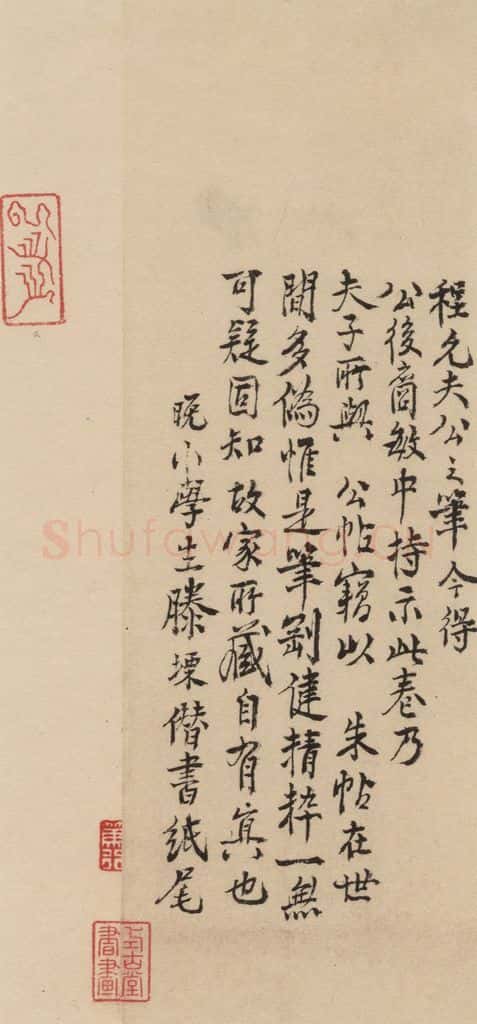 程允夫公之筆今得
公後裔敏中持示此卷乃
夫子所與　公帖竊以　朱帖在世
間多偽惟是筆剛健精粹一無
可疑固知故家所藏自有真也
晚小學生滕塛僭書紙尾
式古堂
書畫
ShufaWang.CN